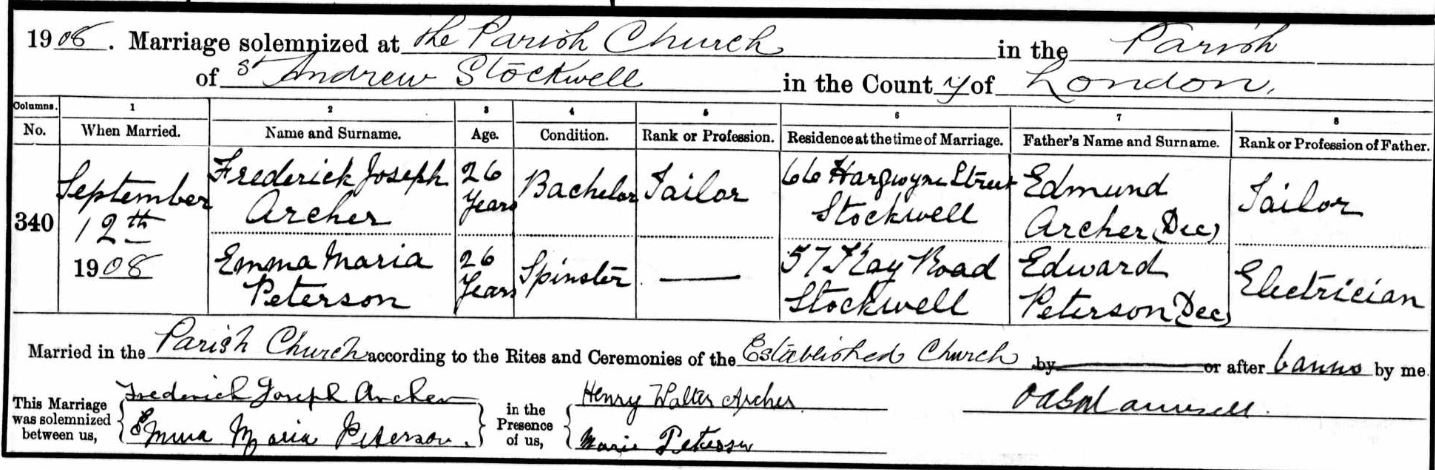 1908. Marriage solemnized at the Parish Church in the Parish
of St Andrew Stockwell in the County of London.
Columns. 1 2 3 4 5 6 7 8
No. When Married. Name and Surname. Age. Condition. Rank or Profession. Residence at the time of Marriage. Father's Name and Surname. Rank or Profession of Father.
340 September 12th 1908
Frederick Joseph Archer 26 Years Bachelor Tailor 66 Hargwyne Street Stockwell Edmund Archer (Dec) Tailor
Emma Maria Peterson 26 Years Spinster — 57 Kay Road Stockwell Edward Peterson (Dec) Electrician
Married in the Parish Church according to the Rites and Ceremonies of the Established Church by or after banns by me
This Marriage was solemnized between us, Frederick Joseph Archer
Emma Maria Peterson.
in the Presence of us, Henry Walter Archer.
Marie Peterson